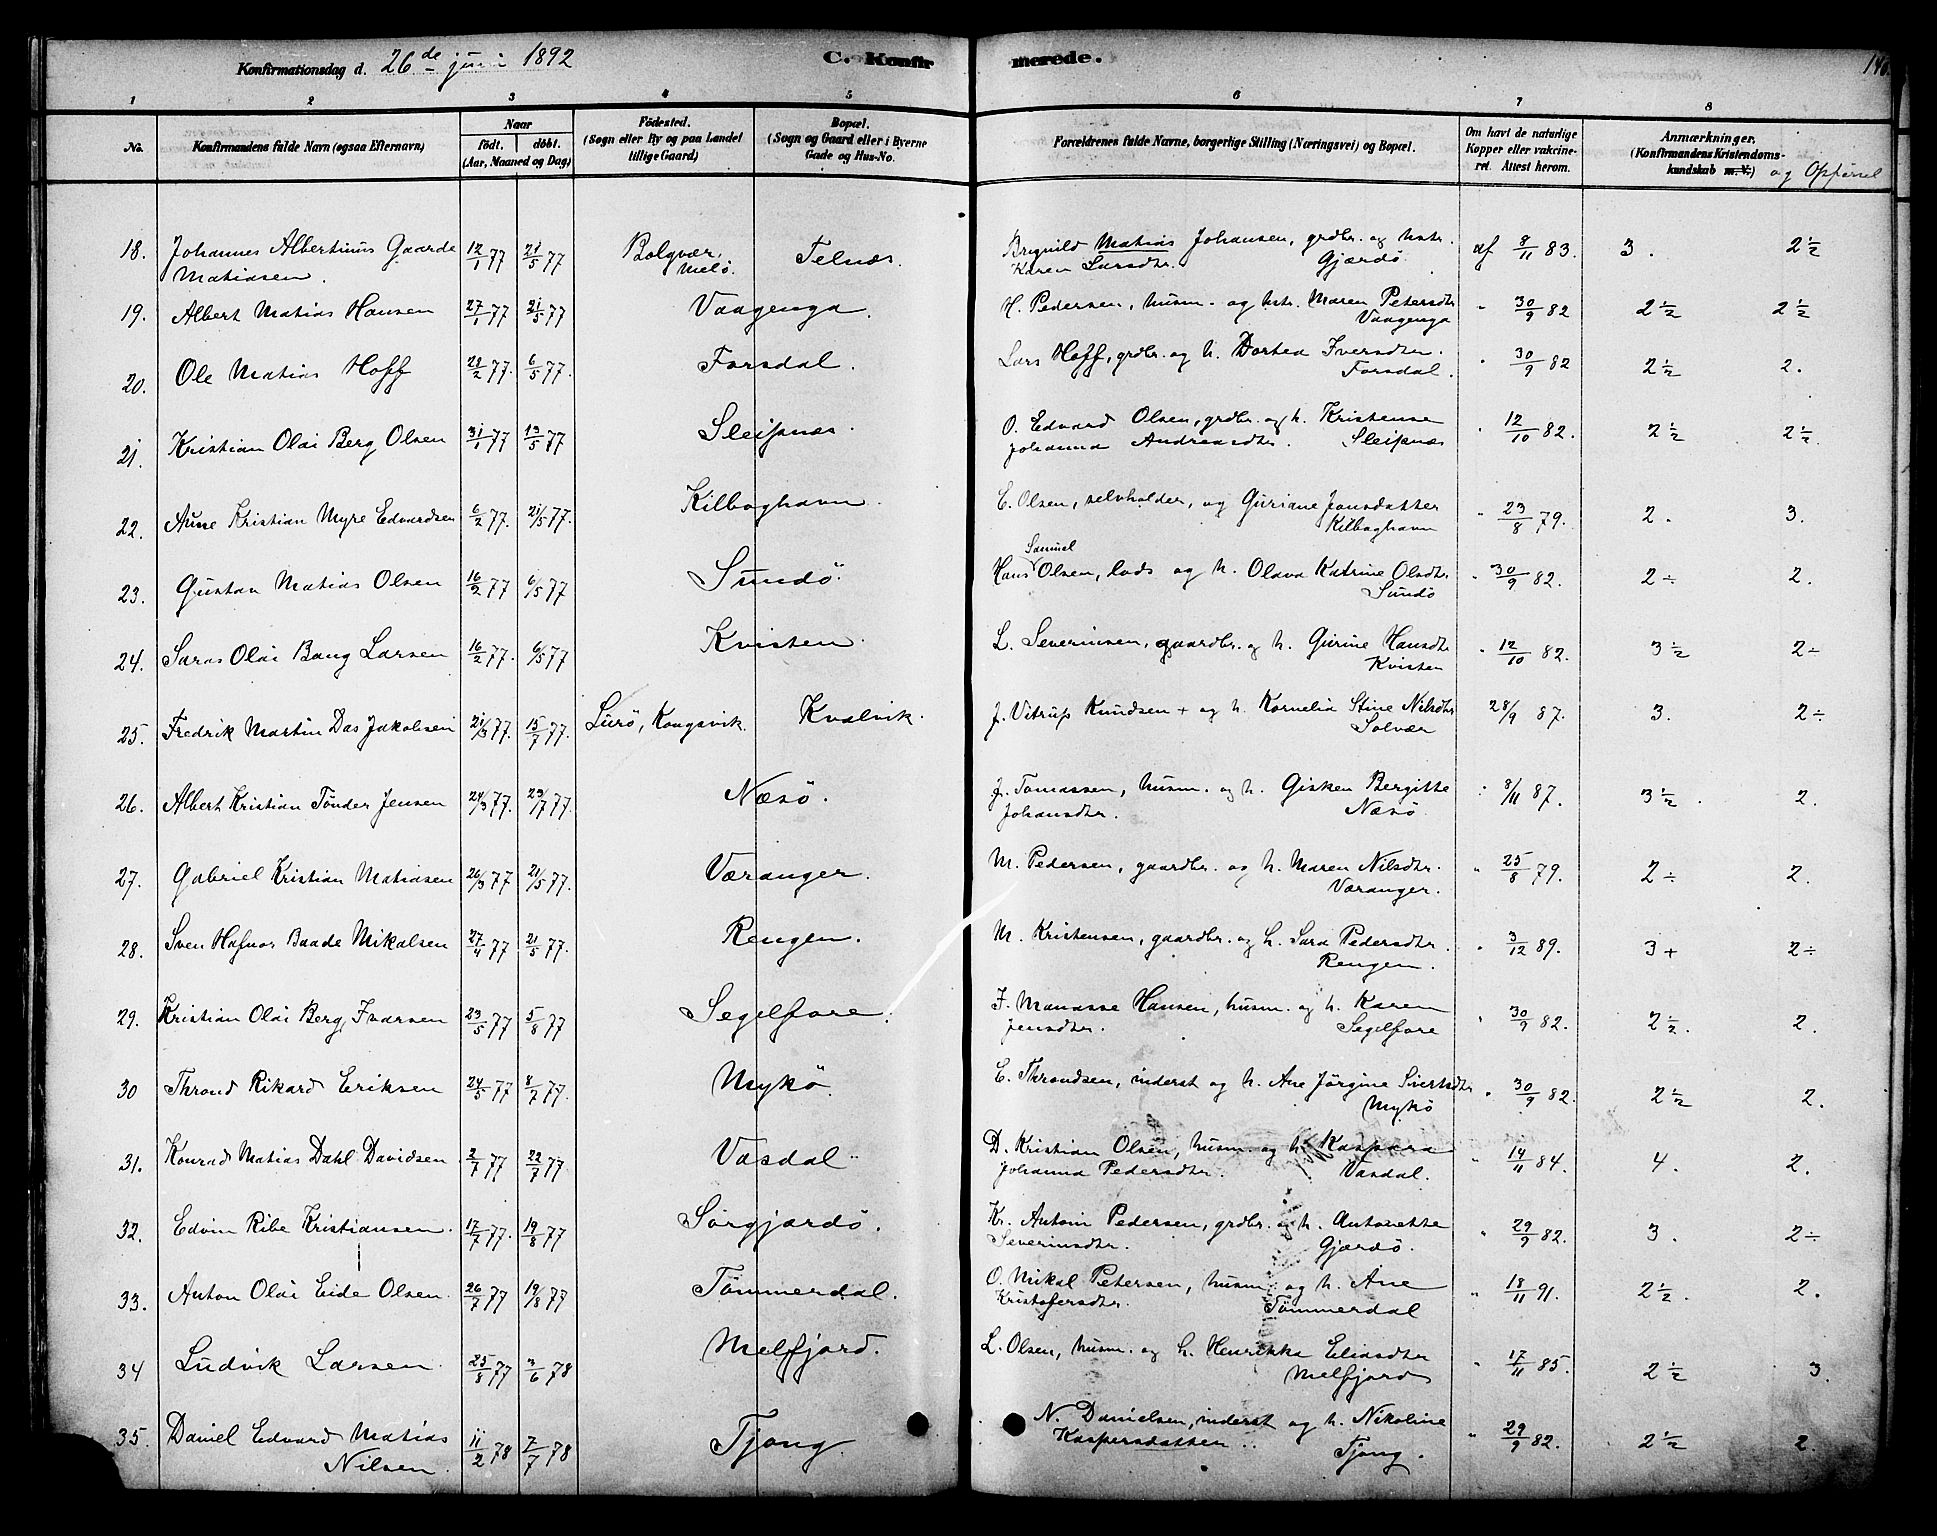 Konfirmationsdag d. 26de juni 1892 C. Konfirmerede. 140
1 2 3 4 5 6 7 8
No. Konfirmandens fulde Navn (ogsaa Efternavn) Naar födt. döbt. (Aar, Maaned og Dag) Födested. (Sogn eller By og paa Landet tillige Gaard) Bopæl. (Sogn og Gaard eller i Byerne Gade og Hus-No. Forældrenes fulde Navne, borgerlige Stilling (Næringsvei) og Bopæl. Om havt de naturlige Kopper eller vakcineret. Attest herom. Anmærkninger. (Konfirmandens Kristendomskundskab m. V.) og Opførsel
18. Johannes Albertinus Gaarde 12/1 77 21/5 77 Bolgvær, Telnes. Brynild Matias Johansen, grdbr. og hstr. af 8/11 83. 3. 2 1/2
Matiasen. Melö. Karen Larsdtr. Gjærdö.
19. Albert Matias Hansen 27/1 77 21/5 77 Vaagenga. H. Pedersen, husm. og hstr. Maren Petersdtr " 30/9 82 2 1/2 2 1/2
Vaagenga
20. Ole Matias Hoff 28/2 77. 6/5 77. Forsdal. Lars Hoff, grdbr. og h. Dortea Iversdtr. " 30/9 82 2 1/2 2.
Forsdal.
21. Kristian Olai Berg Olsen 31/1 77 13/5 77 Sleipnæs O. Edvard Olsen, grdbr. og h. Kristense " 12/10 82. 2 1/2 2 1/2
Johanna Andreasdtr. Sleipnæs
22. Aune Kristian Myre Edvardsen 6/2 77. 21/5 77. Kilboghavn. E. Olsen, selvholder, og Guriane Jonsdatter " 23/8 79. 2. 3.
Kilboghavn
23. Gustav Matias Olsen 16/2 77 6/5 77 Sundö. Hans Samuel Olsen, lods og h. Olava Katrine Olsdtr " 30/9 82. 2 ÷ 2.
Sundö
24. Saras Olai Bang Larsen 16/2 77. 6/5 77 Kvisten. L. Severinsen, gaardbr. og h. Gurine Hansdtr " 12/10 82. 3 1/2 2 ÷
Kvisten
25. Fredrik Martin Das Jakobsen 21/3 77. 15/7 77. Lurö, Kongsvik. Kvalvik. J. Vitrup Knudsen + og h. Kornelia Stine Nilsdtr 28/9 87. 3. 2 ÷
Solvær
26. Albert Kristian Tönder Jensen 24/3 77. 29/7 77. Næsö. J. Tomassen, husm. og h. Gisken Bergitte " 8/11 87. 3 1/2. 2.
Johansdtr. Næsö.
27. Gabriel Kristian Matiasen 26/3 77 21/5 77. Væranger. M. Pedersen, gaardbr. og h. Maren Nilsdtr. " 25/8 79. 2 ÷ 2.
Væranger.
28. Sven Hafnor Baade Mikalsen 27/4 77 21/5 77. Rengen. M. Kristensen, gaardbr. og h. Sara Pedersdtr. " 3/12 89. 3 + 2 ÷
Rengen.
29. Kristian Olai Berg, Ivarsen 23/5 77 5/8 77 Segelfore. I. Manasse Hansen, husm. og h. Karen " 30/9 82. 2 1/2. 2.
Jensdtr. Segelfore
30 Thrond Rikard Eriksen 24/5 77 8/7 77. Mykö. E. Throndsen, inderst og h. Ane Jörgine Siertsdtr " 30/9 82. 2 1/2 2.
Mykö
31. Konrad Matias Dahl Davidsen 2/7 77 22/7 77 Vasdal. D. Kristian Olsen, husm. og h. Kaspara " 14/11 84. 4. 2.
Johanna Pedersdtr. Vasdal.
32. Edvin Ribe Kristiansen. 17/7 77. 19/8 77 Sörgjærdö. Kr. Antoni Pedersen, grdbr. og h. Antonette " 29/9 82. 3. 2 ÷
Severinsdtr. Gjærdö.
33. Anton Olai Eide Olsen. 26/7 77 19/8 77 Tömmerdal. O. Mikal Petersen, husm. og h. Ane " 18/11 91. 2 1/2. 2.
Kristofersdtr. Tömmerdal
34 Ludvik Larsen. 25/8 77 2/6 78 Melfjord. L. Olsen, husm. og h. Henrikka Eliasdtr " 17/11 85. 2 1/2 3.
Melfjord
35. Daniel Edvard Matias 11/2 78 7/7 78 Tjong. N. Danielsen, inderst og h. Nikoline " 29/9 82. 2 1/2 2.
Nilsen. Kaspersdatter. Tjong.